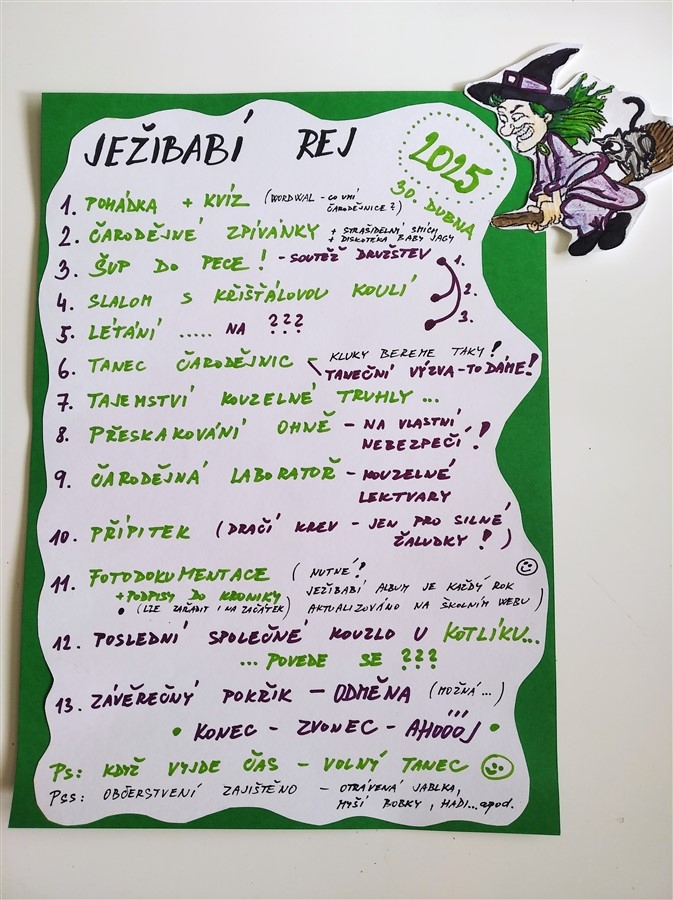 JEŽIBABÍ REJ
2025
30. DUBNA
1. POHÁDKA + KVÍZ (WORDWAL - CO UMÍ
ČARODĚJNICE?)
2. ČARODĚJNÉ ZPÍVÁNKY + STRAŠIDELNÝ SMÍCH
+ DISKOTÉKA BABY JAGY
3. ŠUP DO PECE! - SOUTĚŽ DRUŽSTEV 1.
4. SLALOM S KŘIŠŤÁLOVOU KOULÍ 2.
3.
5. LÉTÁNÍ ..... NA ???
6. TANEC ČARODĚJNIC - KLUKY BEREME TAKY!
TANEČNÍ VÝZVA - TO DÁME!
7. TAJEMSTVÍ KOUZELNÉ TRUHLY ...
8. PŘESKAKOVÁNÍ OHNĚ - NA VLASTNÍ
NEBEZPEČÍ!
9. ČARODĚJNÁ LABORATOŘ - KOUZELNÉ
LEKTVARY
10. PŘÍPITEK (DRAČÍ KREV - JEN PRO SILNÉ
ŽALUDKY!)
11. FOTODOKUMENTACE ( NUTNÉ!
+ PODPISY DO KRONIKY JEŽIBABÍ ALBUM JE KAŽDÝ ROK
• (LZE ZAŘADIT I NA ZAČÁTEK) AKTUALIZOVÁNO NA ŠKOLNÍM WEBU )
12. POSLEDNÍ SPOLEČNÉ KOUZLO U KOTLÍKU...
... POVEDE SE ???
13. ZÁVĚREČNÝ POKŘIK - ODMĚNA (MOŽNÁ...)
• KONEC - ZVONEC - AHÓÓÓJ •
Ps: KDYŽ VYJDE ČAS - VOLNÝ TANEC
Pss: OBČERSTVENÍ ZAJIŠTĚNO - OTRÁVENÁ JABLKA,
MYŠÍ BOBKY, HADI...apod.